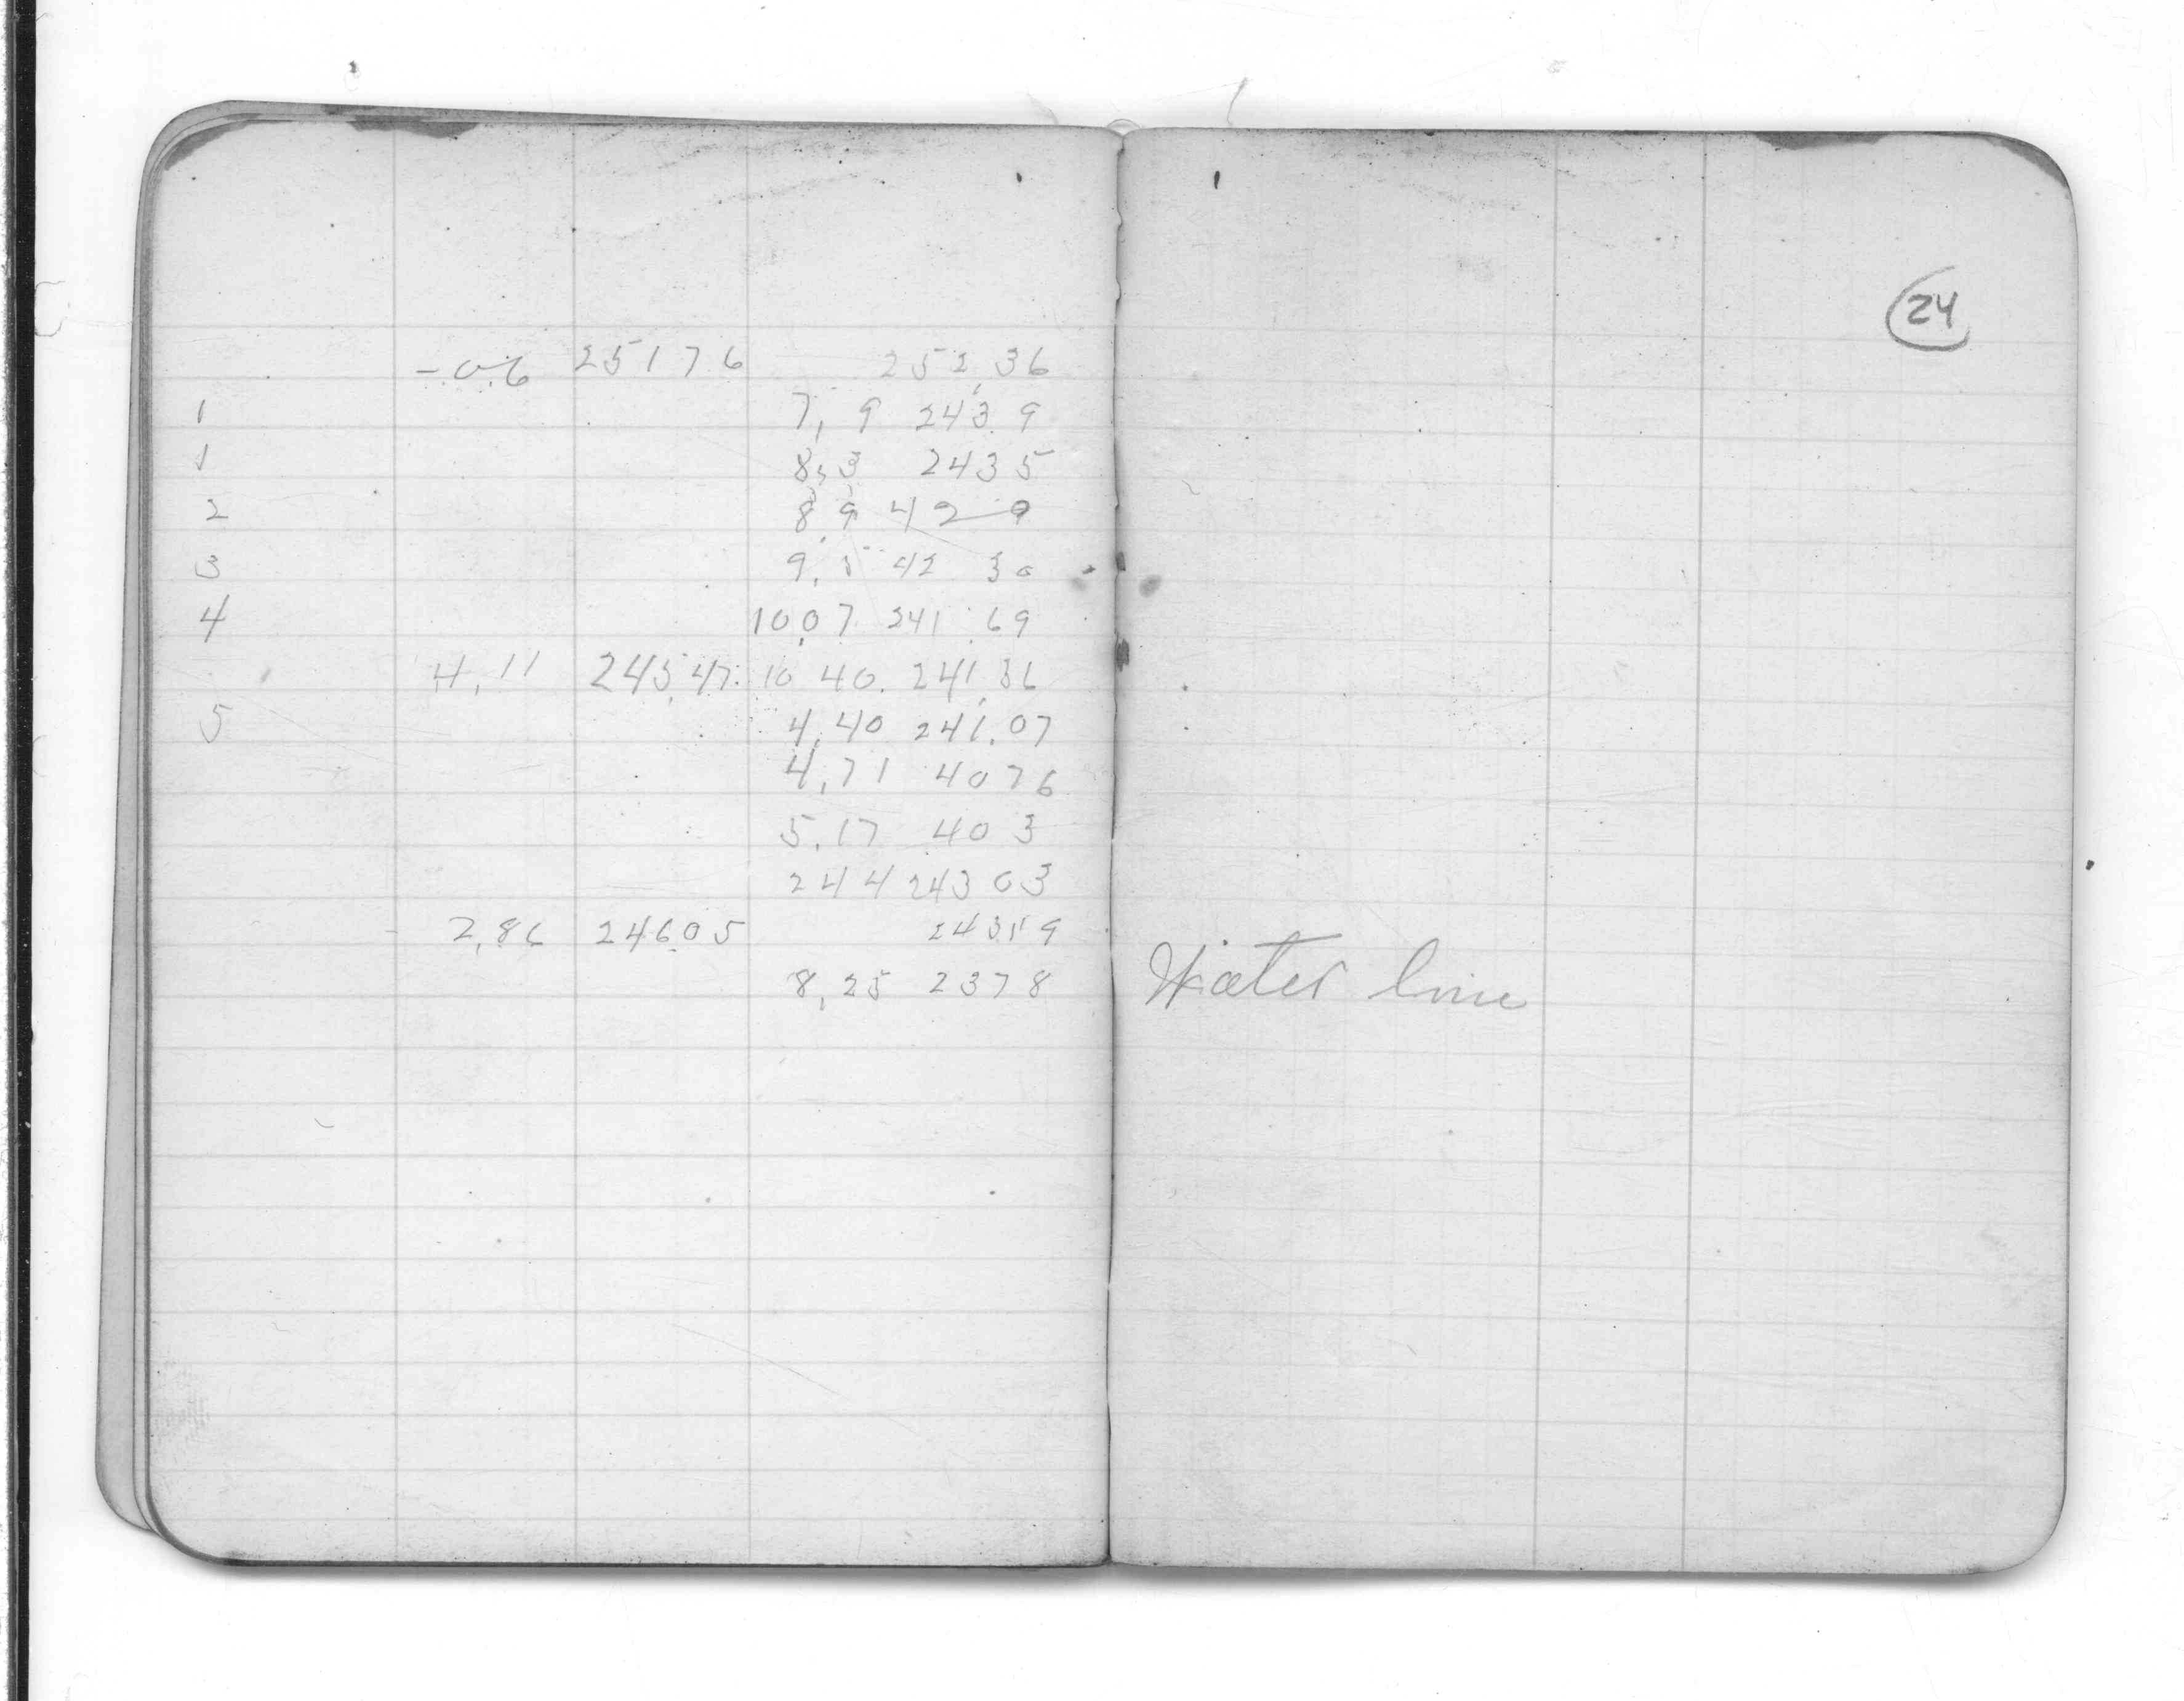 24
-.06 25176 252.36
1 7,9 243.9
1 8,3 2435
2 8,9 429
3 9,5 42 30
4 10,07 241.69
4,11 245,47 10 40. 241,36
5 4,40 241.07
4,71 4076
5,17 403
244 24303
2,86 24605 24319
8,25 2378 Water line